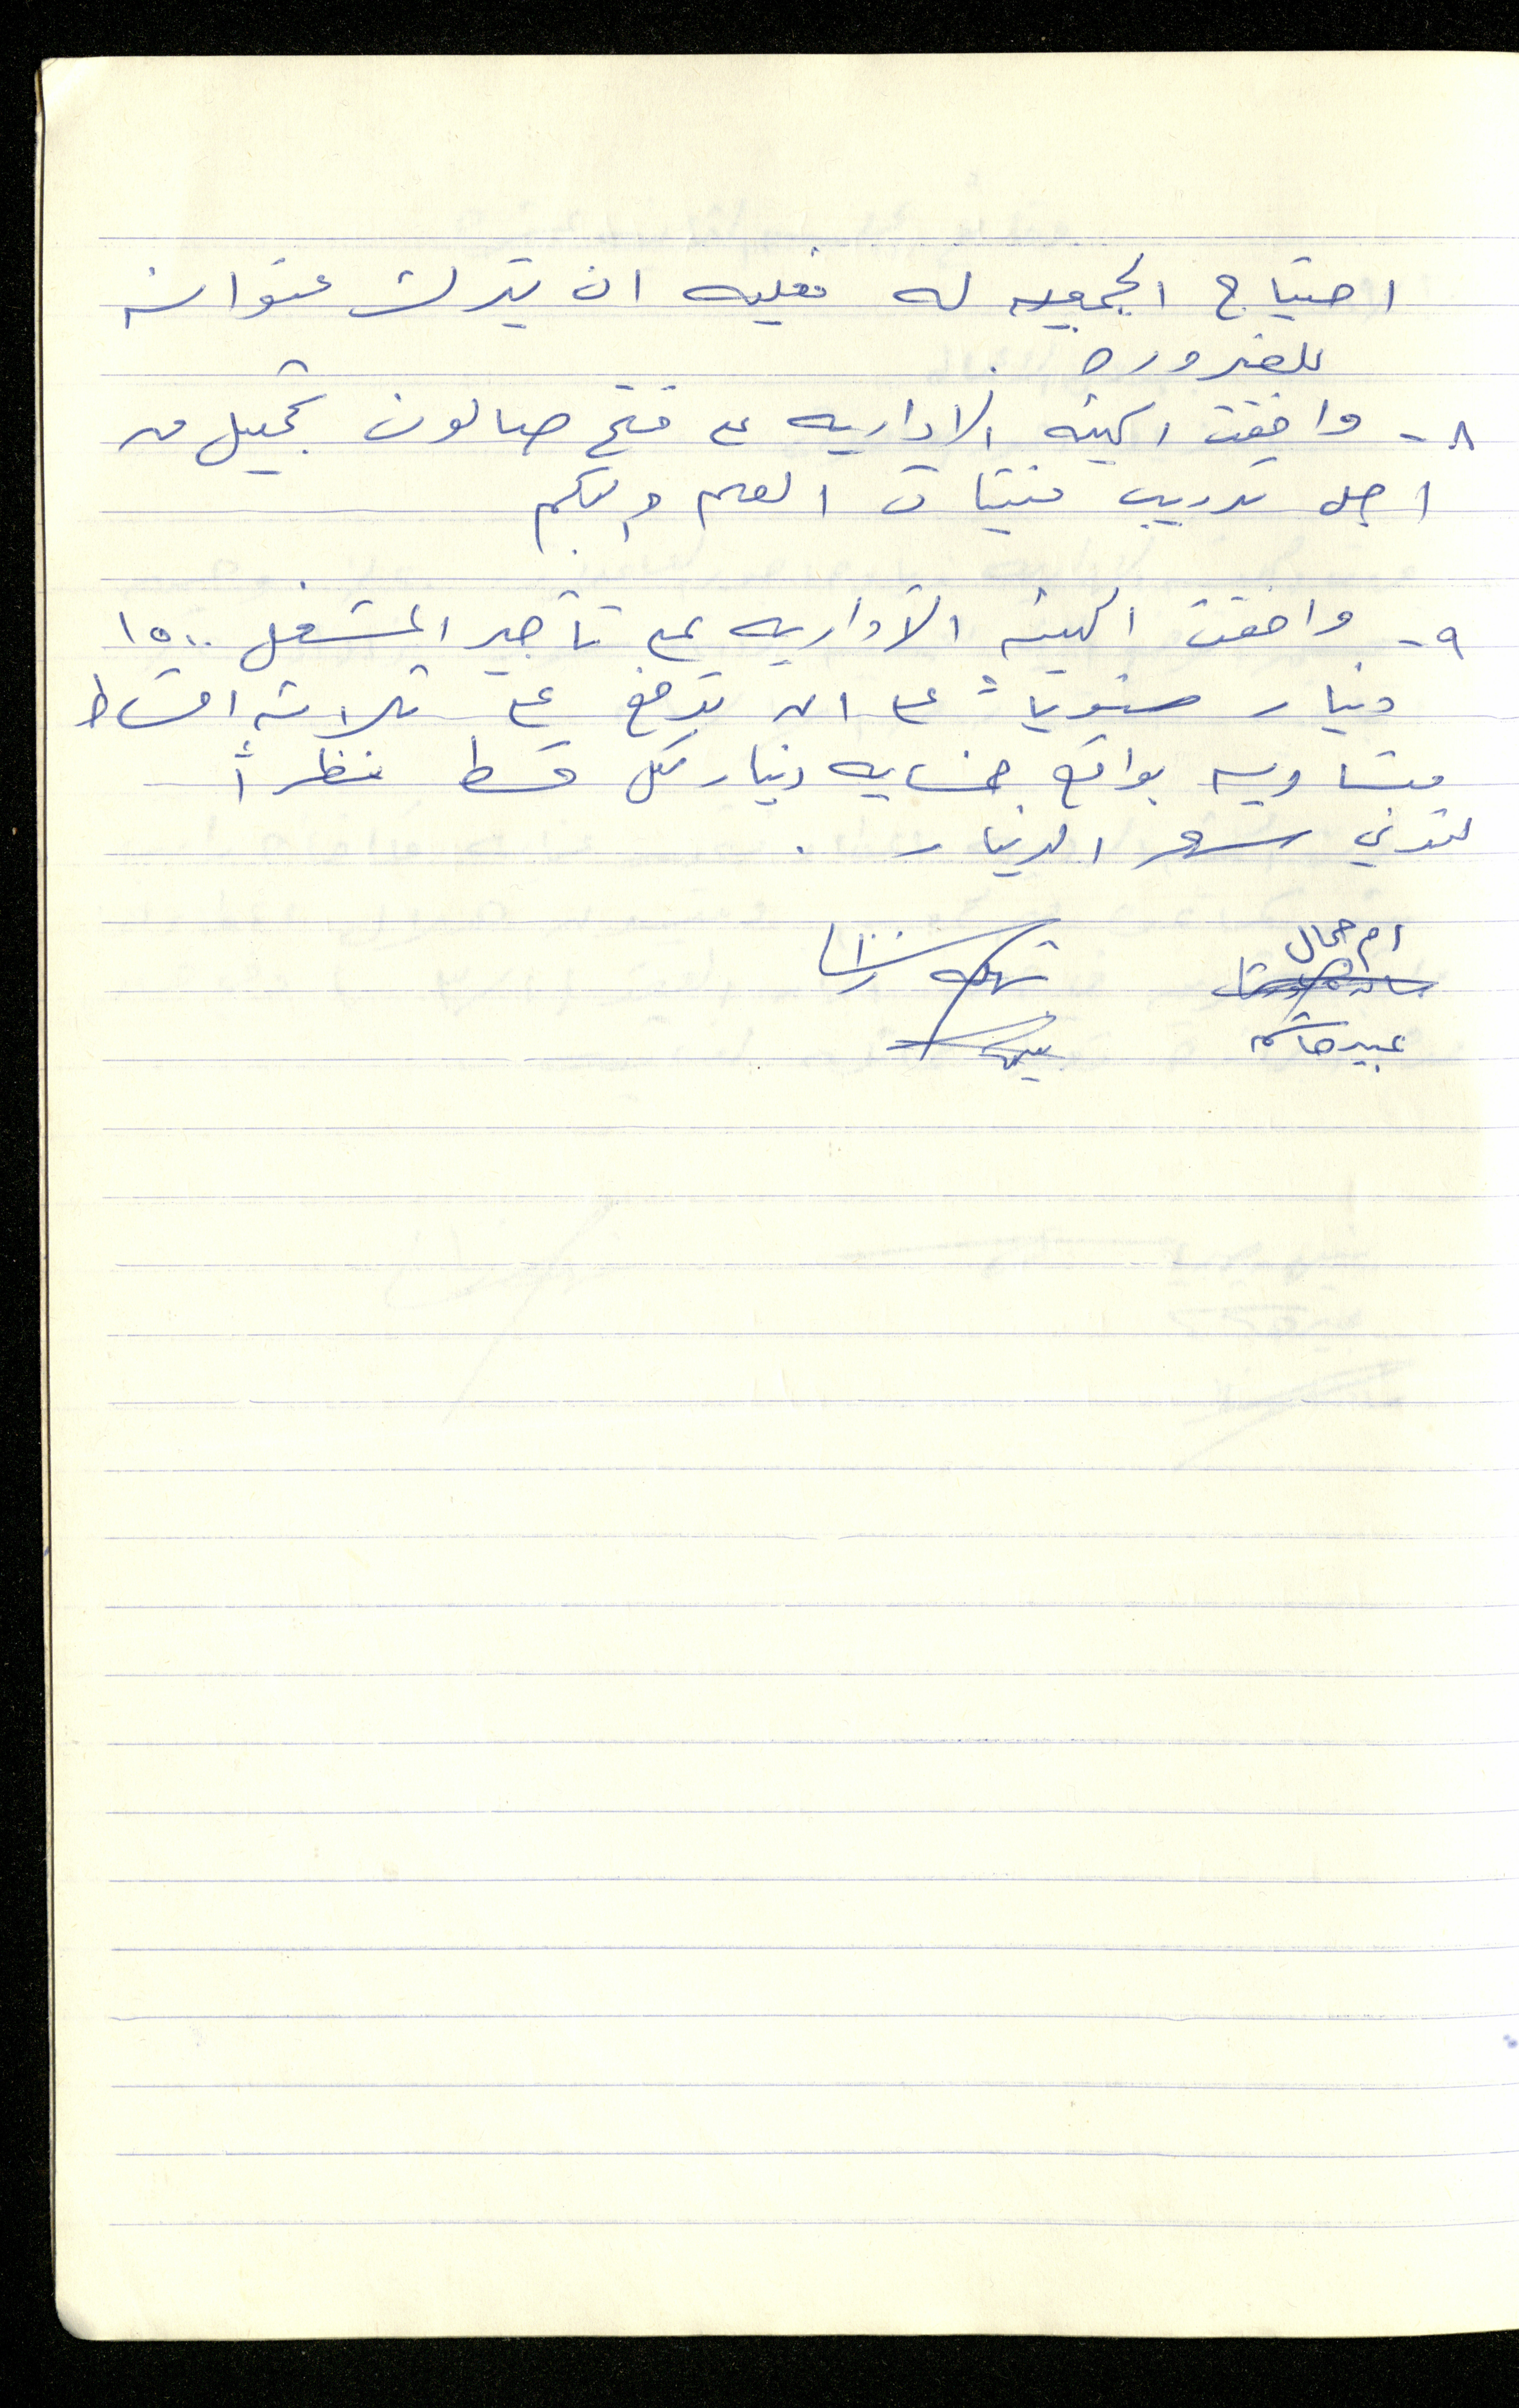 احتياج الجمعيه له فعليه ان يترك عنوانه
للضروره .
٨- وافقت الهيئه الاداريه على فتح صالون تجميل من
اجل تدريب فتيات الصم والبكم
٩- وافقت الهيئه الاداريه على تأجير المشغل ١٥٠٠
دينار سنوياً على ان يدفع على ثلاثه اقساط
متساويه بواقع خمسمايه دينار لكل قسط نظراً
لتدني سعر الدينار .
ام جمال
عبير هاشم